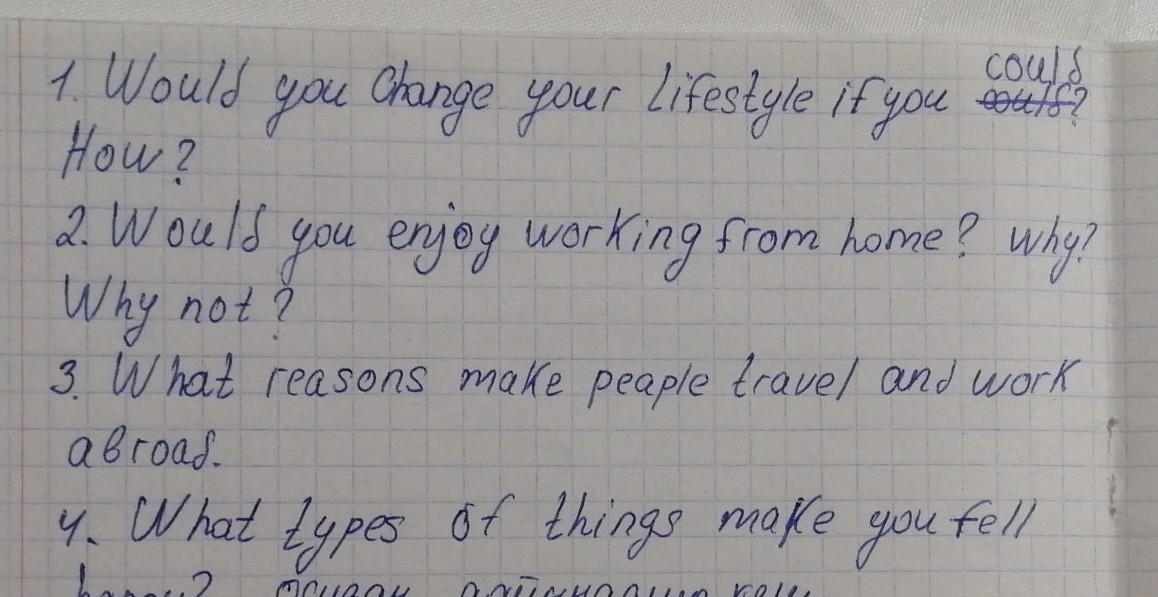 could
1. Would you Change your lifestyle if you could?
How?
2. Would you enjoy working from home? why?
Why not?
3. What reasons make peaple travel and work
abroad.
4. What types of things make you fell
happy?